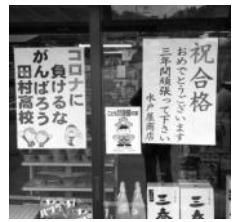 コロナに
負けるな
がんばろう
田村高校
祝合格
おめでとうございます
三年間頑張って下さい
水戸屋商店
三春
三春